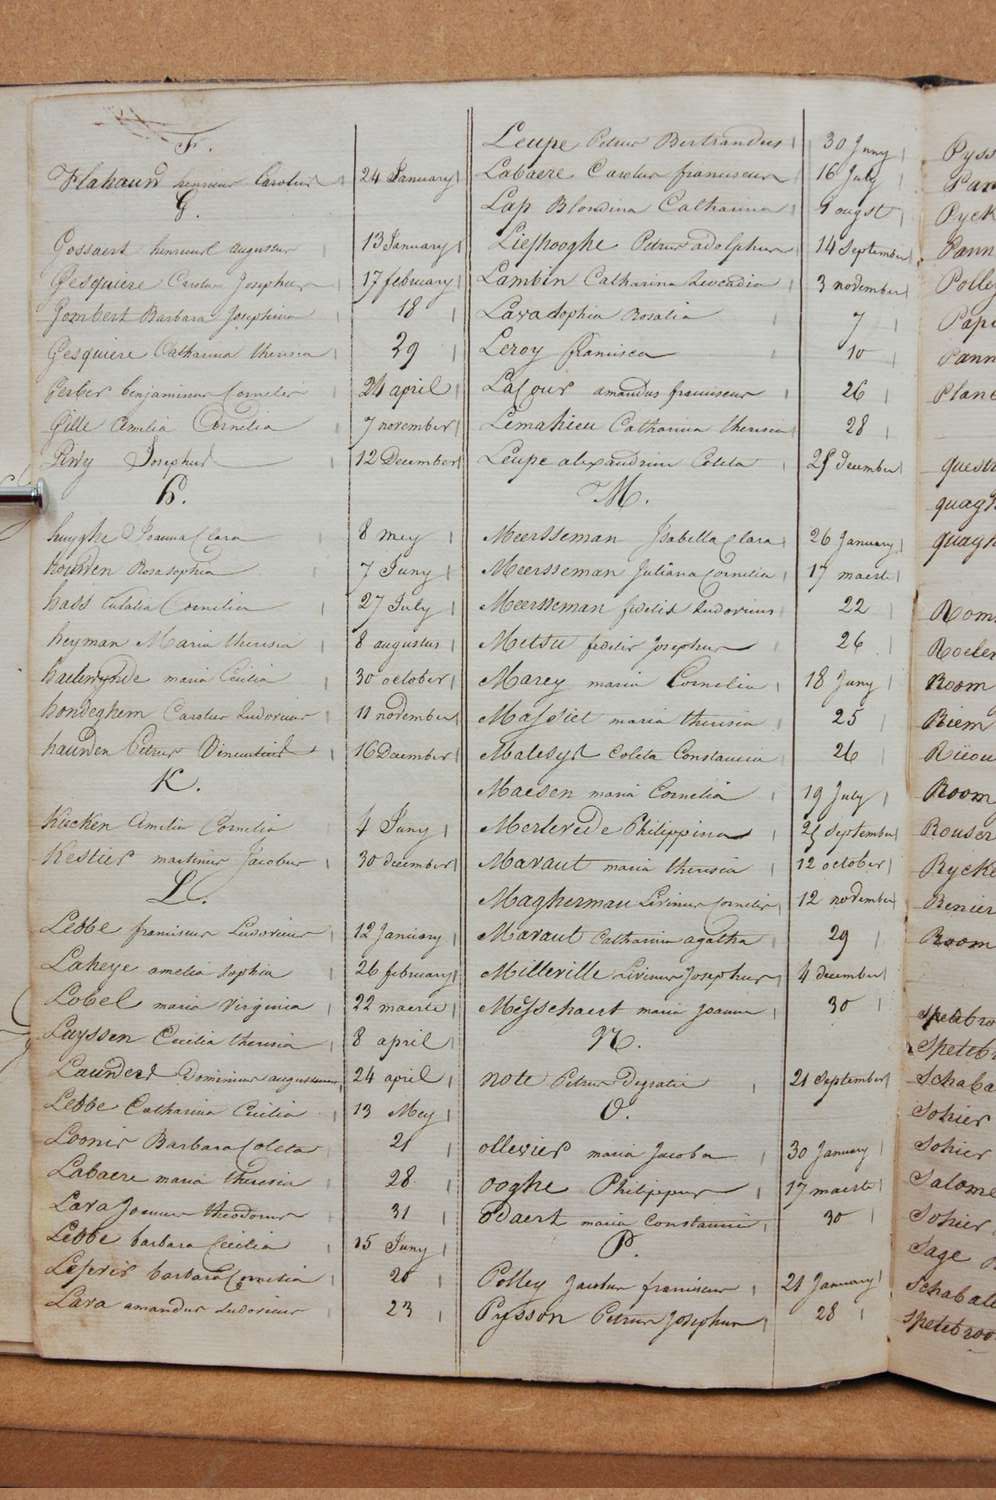 F.
Flahauw henricus Carolus 24 January
G.
Gossaert henricus augustus 13 January
Gesquiere Carolus Josephus 17 february
Gombert Barbara Josephina 18
Gesquiere Catharina theresia 29
Gerber benjaminus Cornelis 24 april
Gille Amelia Cornelia 7 november
Josephus 12 December
H.
huyghe Joanna Clara 8 mey
houwen Rosa sophia 7 Juny
hass Eulalia Cornelia 27 July
heyman Maria theresia 8 augustus
maria Cicilia 30 october
hondeghem Carolus Ludovicus 11 november
hauwen Petrus Vincentius 16 December
K.
Kücken Amelia Cornelia 4 Juny
Kestier martinus Jacobus 30 december
L.
Lebbe franciscus Ludovicus 12 January
Laheye amelia sophia 26 february
Lobel maria Virginia 22 maerte
Luyssen Cecilia theresia 8 april
Launders Dominicus augustinus 24 april
Lebbe Catharina Cicilia 13 Mey
Loonis Barbara Coleta 21
Labaere maria theresia 28
Lava Joannes theodorus 31
Lebbe barbara Cecilia 15 Juny
barbara Cornelia 20
Lava amandus Ludovicus 23
Leupe Petrus Bertrandus 30 Juny
Labaere Carolus franciscus 16 July
Lap Blondina Catharina 9 augst
Lieshooghe Petrus adolphus 14 september
Lambin Catharina Leocadia 3 november
Lava sophia Rosalia 7
Leroy francisca 10
Lacour amandus franciscus 26
Lemahieu Catharina theresia 28
Leupe alexandrina Coleta december
M.
Meersseman Isabella Clara 26 January
Meersseman Juliana Cornelia 17 maerte
Meersseman fidelis Ludovicus 22
Metsu fidelis Josephus 26
Marey maria Cornelia 18 Juny
Massiet maria theresia 25
Malesys Coleta Constancia 26
Maesen maria Cornelia 19 July
Merlevede Philippina 25 september
Maraut maria theresia 12 october
Magherman Livinus Cornelis 12 november
Maraut Catharina agatha 29
Milleville Livinus Josephus 4 december
Messchaert maria Joanna 30
N.
note Petrus Degratia 21 september
O.
ollevier maria Jacoba 30 January
ooghe Philippus 17 maerte
odaert maria Constantia 30
P.
Polley Jacobus franciscus 21 January
Pysson Petrus Josephus 28
Pyss
Par
Pyck
Pann
Polley
Pape
Pann
Planc
quest
quagh
quagh
Roms
Roeler
Room
Riem
Riiou
Room
Rouser
Rycke
Renier
Room
Spetebroo
Spetebr
Schaba
Sohier
Sohier
Salome
Sohier
Sage
Schabali
Spetebroo